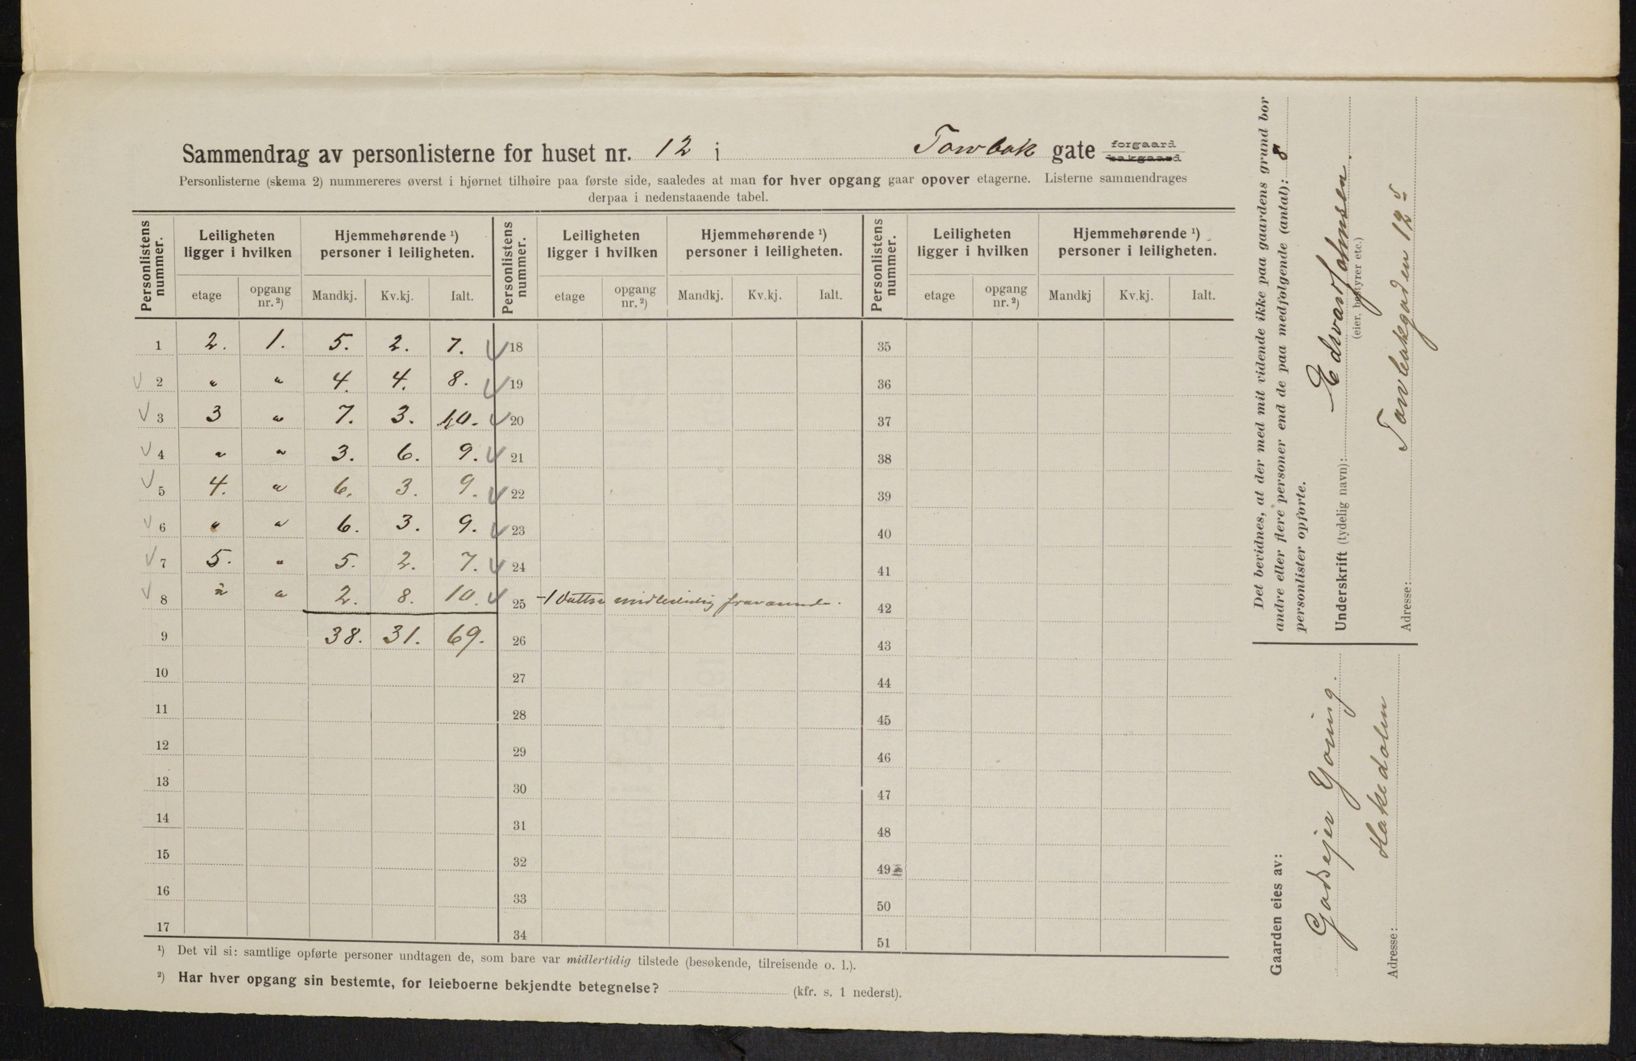 Sammendrag av personlisterne for huset nr. 12 i Towbak gate forgaard bakgaard
Personlisterne (skema 2) nummereres øverst i hjørnet tilhøire paa første side, saaledes at man for hver opgang gaar opover etagerne. Listerne sammendrages
derpaa i nedenstaaende tabel.
Personlistens nummer. Leiligheten ligger i hvilken Hjemmehørende ¹) personer i leiligheten. Personlistens nummer. Leiligheten ligger i hvilken Hjemmehørende ¹) personer i leiligheten. Personlistens nummer. Leiligheten ligger i hvilken Hjemmehørende ¹) personer i leiligheten.
etage opgang nr.²) Mandkj. Kv.kj. Ialt. etage opgang nr.²) Mandkj. Kv.kj. Ialt. etage opgang nr.²) Mandkj Kv.kj. Ialt.
1 2. 1. 5. 2. 7. 18 35
2 " " 4. 4. 8. 19 36
3 3 " 7. 3. 10. 20 37
4 " " 3. 6. 9. 21 38
5 4. " 6. 3. 9. 22 39
6 " " 6. 3. 9. 23 40
7 5. " 5. 2. 7. 24 41
8 " " 2. 8. 10. 25 midlertidig 42
9 38. 31. 69. 26 43
10 27 44
11 28 45
12 29 46
13 30 47
14 31 48
15 32 49
16 33 50
17 34 51
¹) Det vil si: samtlige opførte personer undtagen de, som bare var midlertidig tilstede (besøkende, tilreisende o. l.).
²) Har hver opgang sin bestemte, for leieboerne bekjendte betegnelse? (kfr. s. 1 nederst).
Det bevidnes, at der med mit vidende ikke paa gaardens grund bor
andre eller flere personer end de paa medfølgende (antal): 8
personlister opførte.
Underskrift (tydelig navn): Edvard Johnsen.
(eier, bestyrer etc.)
Adresse: Towbakgaden 12
Gaarden eies av:
Gadsejer Young.
Adresse: Hakedalen